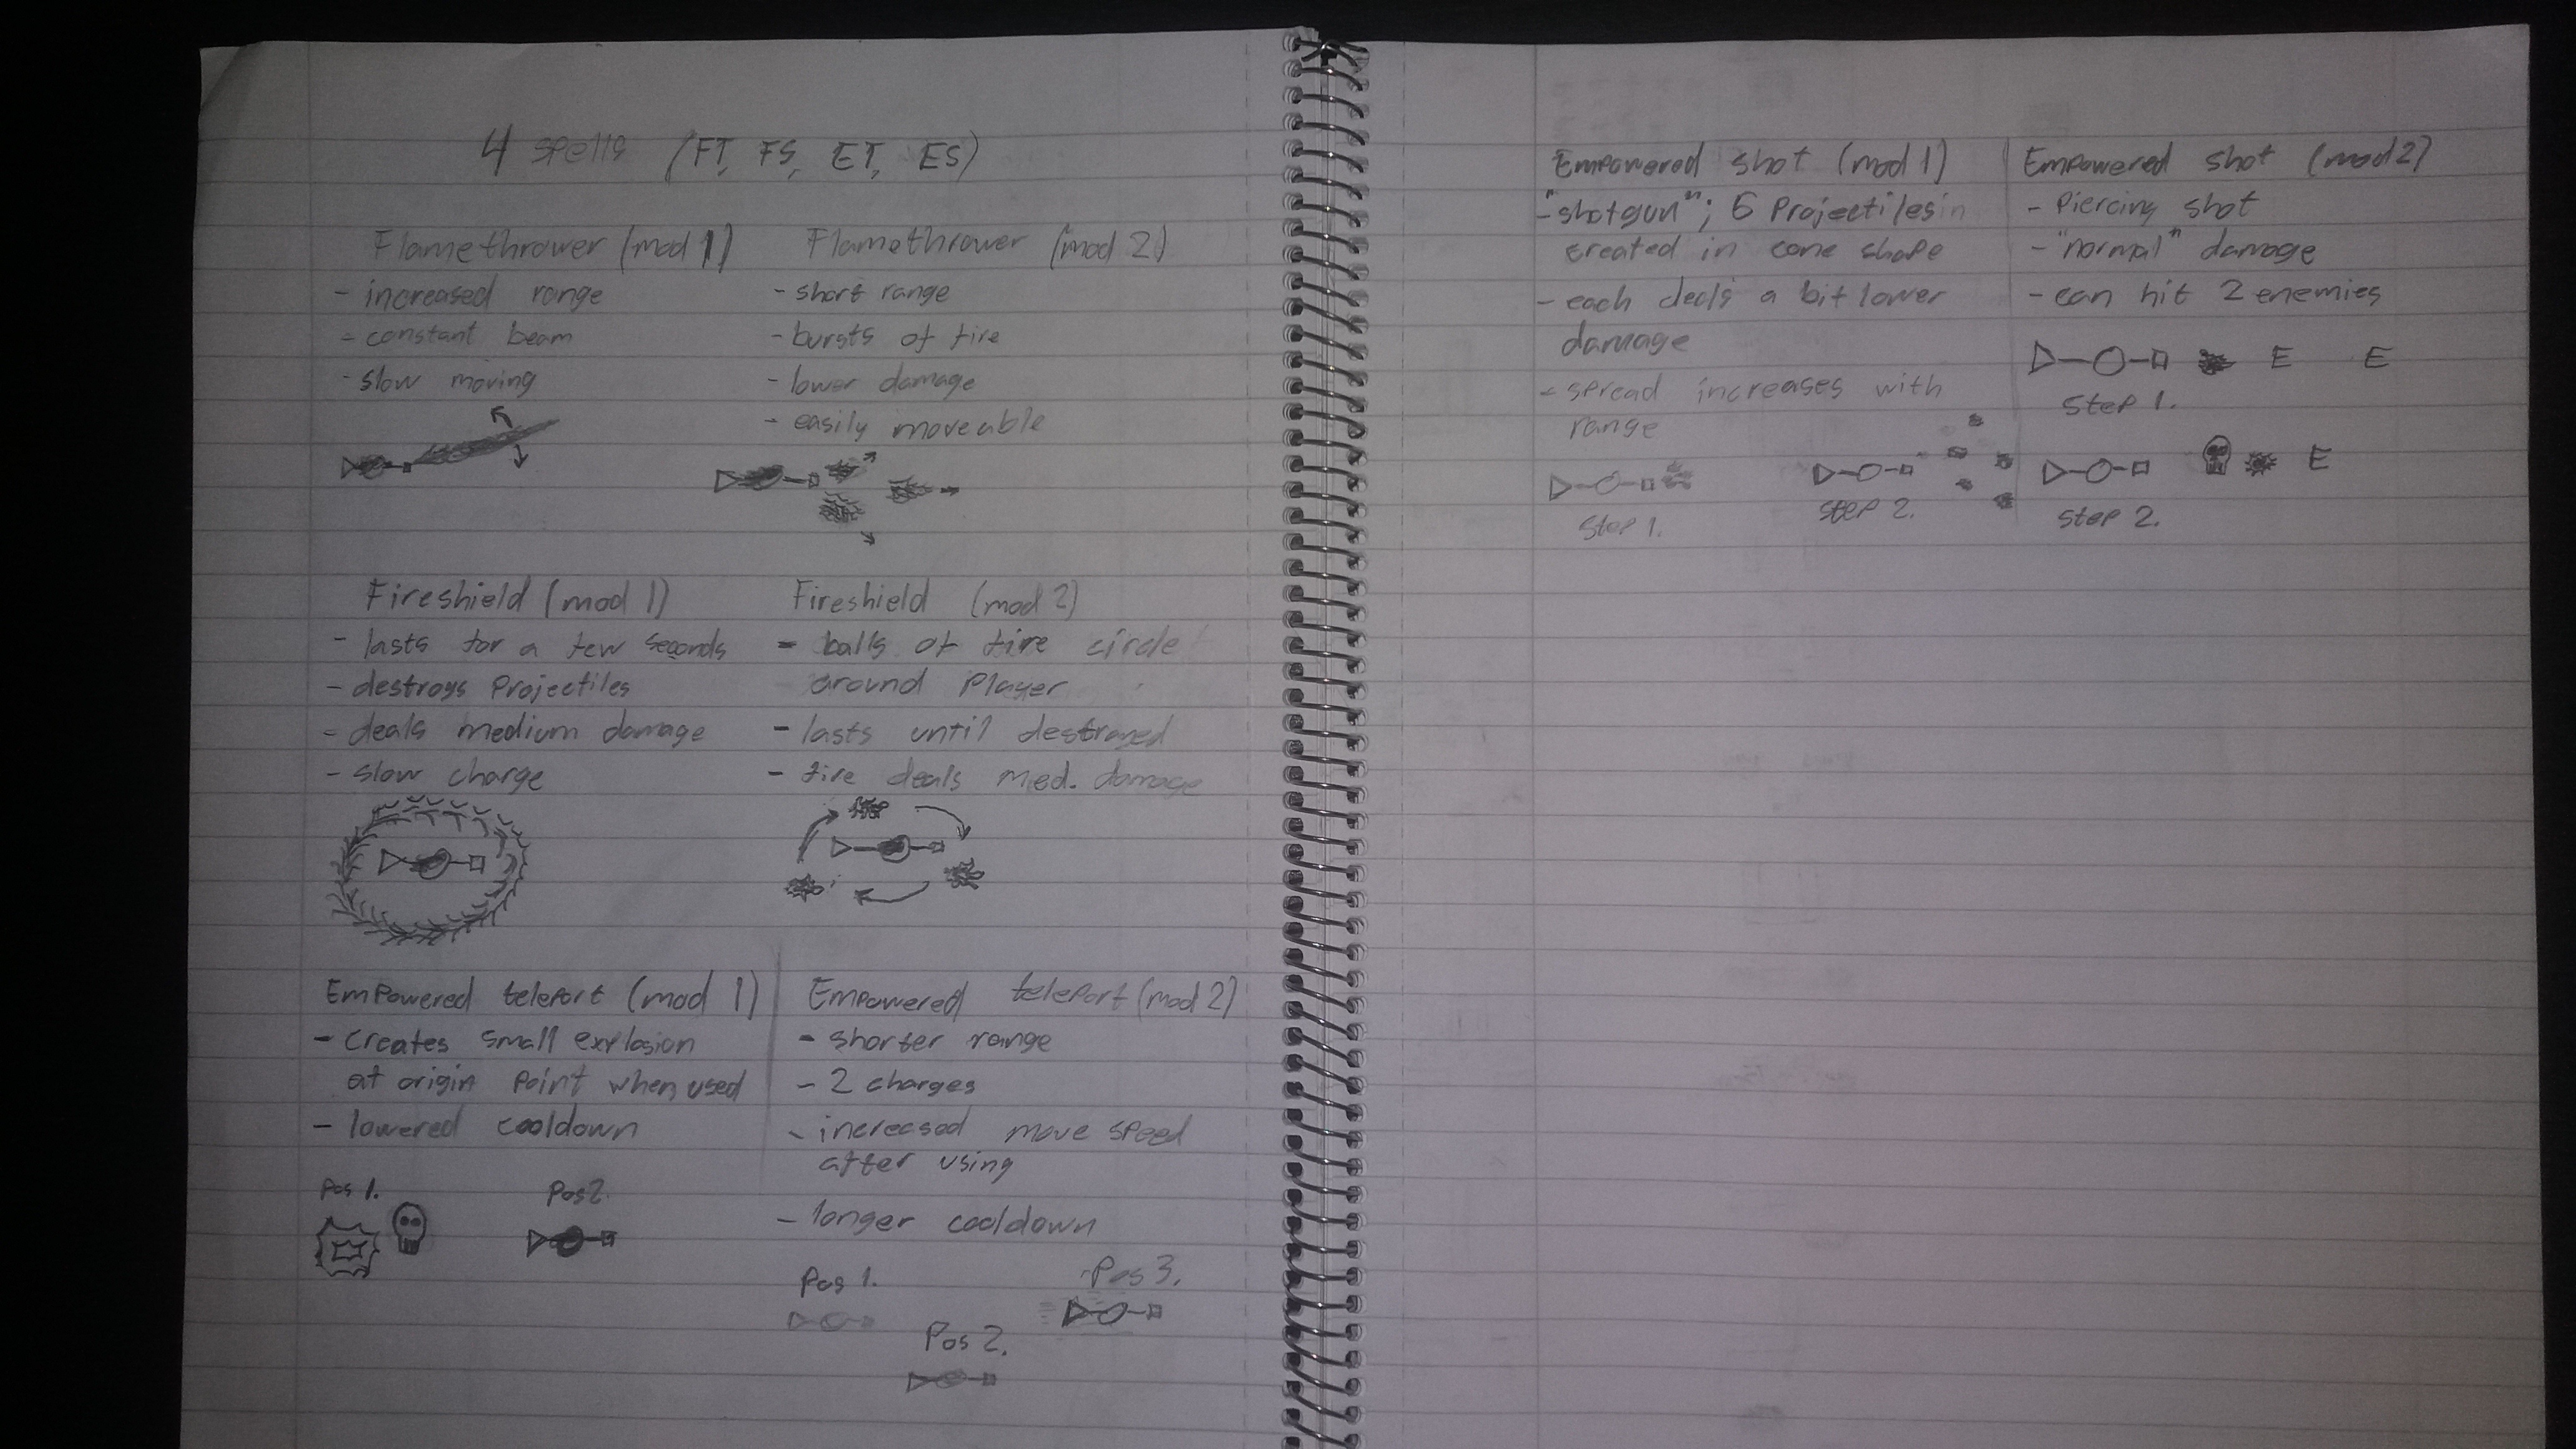 4 spells (FT, FS, ET, ES)
Flamethrower (mod 1)
- increased range
- constant beam
- slow moving
Flamethrower (mod 2)
- short range
- bursts of fire
- lower damage
- easily moveable
Fireshield (mod 1)
- lasts for a few seconds
- destroys Projectiles
- deals medium damage
- slow charge
Fireshield (mod 2)
- balls of fire circle
around Player
- lasts until destroyed
- fire deals med. damage
Empowered teleport (mod 1)
- Creates small explosion
at origin point when used
- lowered cooldown
Pos 1.
Pos 2.
Empowered teleport (mod 2)
- shorter range
- 2 charges
- increased move speed
after using
- longer cooldown
Pos 1.
Pos 2.
Pos 3.
Empowered shot (mod 1)
- "shotgun"; 6 Projectiles in
created in cone shape
- each deals a bit lower
damage
- spread increases with
range
Step 1.
Step 2.
Empowered shot (mod 2)
- Piercing shot
- "normal" damage
- can hit 2 enemies
E E
Step 1.
E
Step 2.